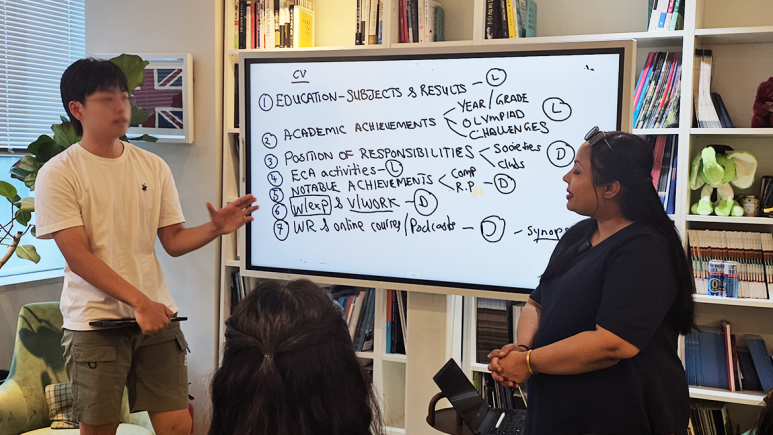 CV
① EDUCATION-SUBJECTS & RESULTS - Ⓛ
② ACADEMIC ACHIEVEMENTS YEAR/GRADE
OLYMPIAD
CHALLENGES Ⓛ
③ POSITION OF RESPONSIBILITIES Societies
Clubs Ⓓ
④ ECA activities-Ⓛ
⑤ NOTABLE ACHIEVEMENTS Comp
R.P - Ⓓ
⑥ W/exp & V/WORK - Ⓓ
⑦ WR & online courses/Podcasts - Ⓓ - Synops